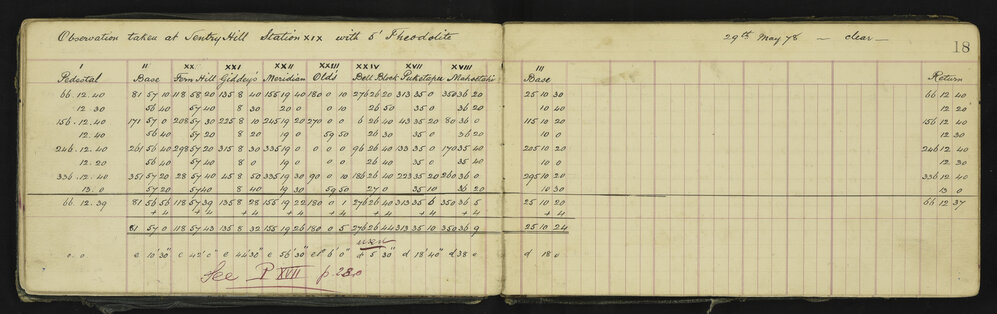 Observation taken at Sentry Hill Station XIX with 5" Theodolite 29th May 78 — clear —
18
I II XX XXI XXII XXIII XXIV XVII XVIII III
Pedestal Base Fern Hill Giddey's Meridian Olds Bell Block Puketapu Mahoetahi Base Return
66.12.40 81 57 10 118 58 20 135 8 40 155 19 40 180 0 10 276 26 20 313 35 0 350 36 20 25 10 30 66 12 40
12 30 56 40 57 40 8 30 20 0 0 10 26 50 35 0 36 20 10 40 12 20
156.12.40 171 57 0 208 57 30 225 8 10 245 19 20 270 0 0 6 26 40 43 35 20 80 36 0 115 10 20 156 12 40
12.40 56 40 57 40 8 20 19 0 59 50 26 30 35 0 36 20 10 0 12 30
246.12.40 261 56 40 298 57 20 315 8 30 335 19 0 0 0 96 26 40 133 35 0 170 35 40 205 10 20 246 12 40
12.20 56 40 57 40 8 0 19 0 0 0 26 40 35 0 35 40 10 0 12 30
336.12.40 351 57 20 28 57 40 45 8 50 335 19 30 90 0 10 186 26 40 223 35 20 260 36 0 295 10 20 336 12 40
13.0 57 20 57 40 8 40 19 30 59 50 27 0 35 10 36 20 10 30 13 0
66.12.39 81 56 56 118 57 39 135 8 28 155 19 22 180 0 1 276 26 40 313 35 6 350 36 5 25 10 20 66 12 37
+4 +4 +4 +4 +4 +4 +4 +4 +4
81 57 0 118 57 43 135 8 32 155 19 26 180 0 5 276 26 44 313 35 10 350 36 9 25 10 24
used
0.0 c 10' 30" c 42' 0" c 44' 30" c 56' 30" el° 6' 0" d 5' 30" d 18' 40" d 38 0 d 18 0
See P XVII p. 28